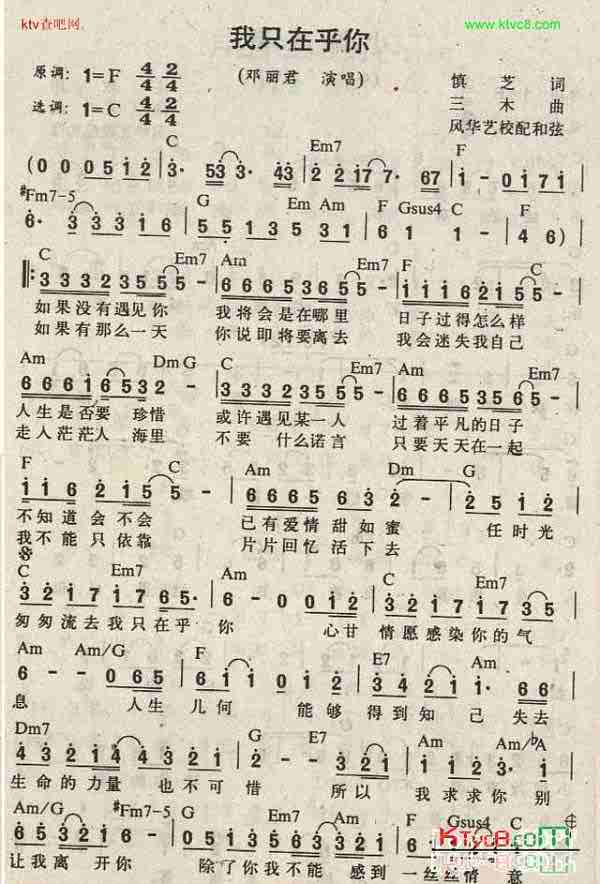 ktv查吧网.
www.ktvc8.com
我只在乎你
原调:1=F 4/4 2/4
(邓丽君 演唱)
慎芝 词
选调:1=C 4/4 2/4
三木 曲
风华艺校配和弦
C Em7 F
(0 0 0 5 1 2 3· 53 3· 43 2 2 17 7· 67 1 - 0 1 7 1
#Fm7-5 G Em Am F Gsus4 C F
6· 3 3 3 1 6 5 0 1 3 5 3 1 6 1 1 - (4 6)
C Em7 Am Em7 F C Em7
3 3 3 2 3 5 5 5 - 6 6 6 5 3 5 5 5 - 1 1 1 6 2 1 5 5 -
如果没有遇见你 我将会是在哪里 日子过得怎么样
如果有那么一天 你说即将要离去 我会迷失我自己
Am Dm G C Em7 Am Em7
6 6 6 1 6 5 3 2 - 3 3 3 2 3 5 5 5 - 6 6 6 5 3 5 5 5 -
人生是否要 珍惜 或许遇见某一人 过着平凡的日子
走入茫茫人 海里 不要 什么诺言 只要天天在一起
F C Am Dm G
1 1 6 2 1 5 5 - 6 6 6 5 6 3 2 - 2 5 1 2
不知道会不会 已有爱情甜如蜜 任时光
我不能只依靠 片片回忆活下去
C Em7 Am C Em7
3 2 1 7 1 7 6 5· 6 - 0 0 1 2 3 2 1 7 1 7 3 5
匆匆流去我只在乎 你 心甘 情愿感染你的气
Am Am/G F E7 Am
6 - 0 6 5 6 1 0 1 2 3 4 2 1 1· 6 6
息 人生 几何 能够 得到知 己 失去
Dm7 G E7 Am Am/♭A
4 3 2 1 4 3 2 3 2 - - 3 2 1 1 7 1 2 1
生命的力量 也不可惜 所以 我求求你 别
Am/G #Fm7-5 F Gsus4 C
让我离 开你 除了你我不能 感到 一丝丝情 意
KTvc8.com